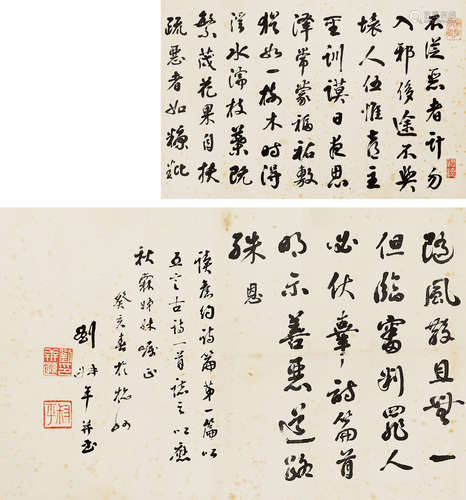 不從惡者計勿
入邪侈途不與
壞人伍惟喜主
至訓謨日夜思
澤常蒙福祐敷
猶如一樹木時得
溪水濡枝葉既
繁茂花果自扶
疏惡者如糠粃
隨風散且無一
但臨審判罪人
必伏辜詩篇首
明示善惡道路
殊 恩
讀舊約詩篇第一篇以
五言古詩一首誌之以應
秋霖姊妹囑正
癸亥春於
劉 年并書